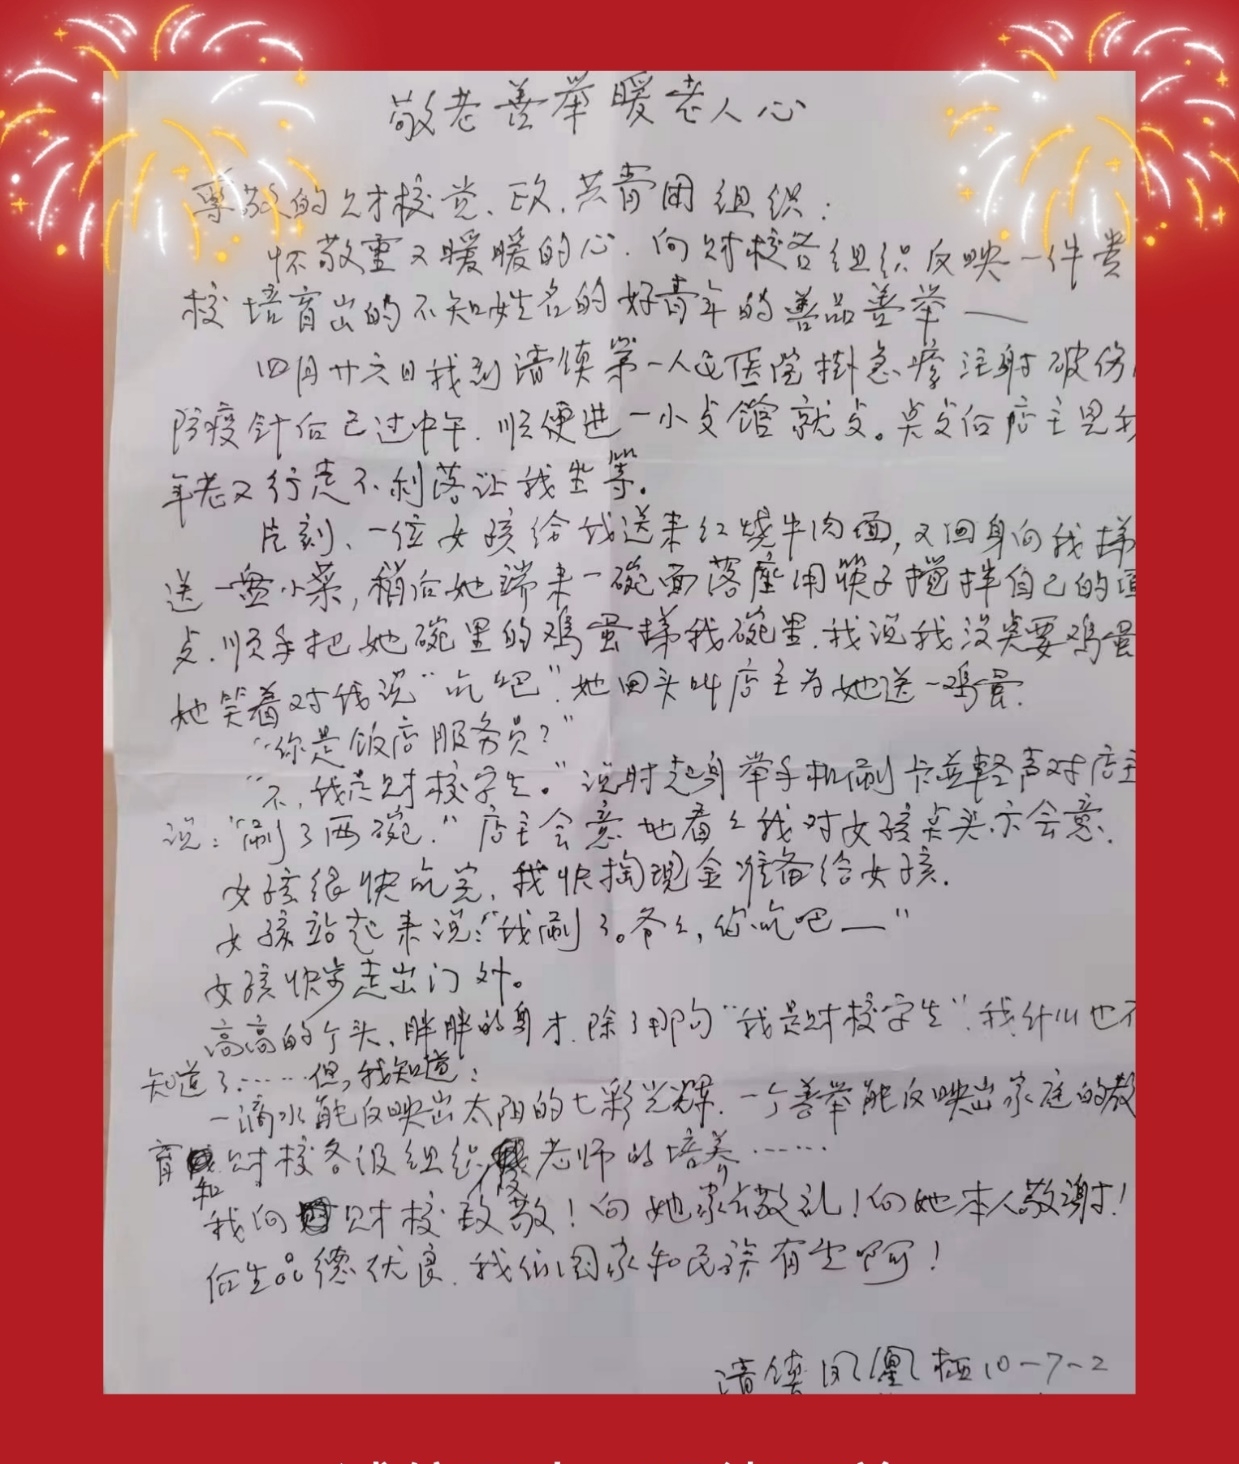 敬老善举暖老人心
尊敬的财校党、政、共青团组织：
怀敬重又暖暖的心.向财校各组织反映一件贵
校培育出的不知姓名的好青年的善品善举——
四月廿六日我到清镇第一人民医院掛急疹注射破伤
防疫針后已过中午.顺便进一小食馆就食。点食后店主見我
年老又行走不利落让我坐等。
片刻、一位女孩给我送来红燒牛肉面,又回身向我
送一盘小菜,稍后她端来一碗面落座用筷子攪拌自己的
食.顺手把她碗里的鸡蛋 我碗里.我说我没点要鸡蛋
她笑着对我说“吃吧”.她回头叫店主为她送一鸡蛋.
“你是饭店服务员?”
“不,我是财校学生。”说时起身举手机刷卡並輕声对店主
说：“刷了两碗.”店主会意地看々我对女孩点头示会意.
女孩很快吃完.我快掏现金准备给女孩.
女孩站起来说：“我刷了。爷々,你吃吧—”
女孩快步走出门外。
高高的个头、胖胖的身才.除了那句“我是财校学生”.我什么也不
知道了……但,我知道：
一滴水能反映出太阳的七彩光輝.一个善举能反映出家庭的教
育和财校各级组织 老师的培养……
我向财校致敬!向她家长敬礼!向她本人敬謝!
后生品德优良.我们国家和民族有望啊!
清镇凤凰 10-7-2